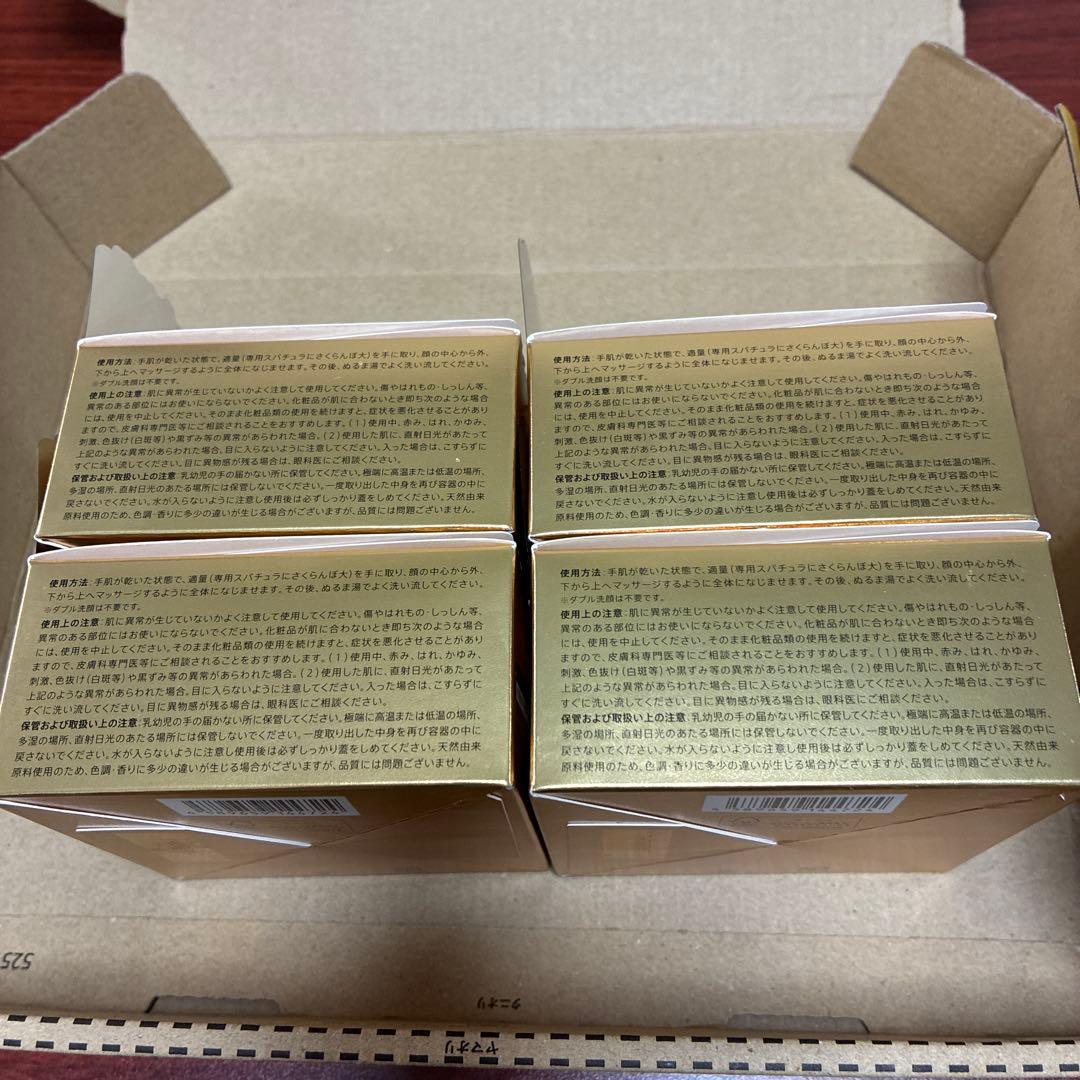 使用方法:手肌が乾いた状態で、適量(専用スパチュラにさくらんぼ大)を手に取り、顔の中心から外、
下から上へマッサージするように全体になじませます。その後、ぬるま湯でよく洗い流してください。
※ダブル洗顔は不要です。
使用上の注意:肌に異常が生じていないかよく注意して使用してください。傷やはれもの・しっしん等、
異常のある部位にはお使いにならないでください。化粧品が肌に合わないとき即ち次のような場合
には、使用を中止してください。そのまま化粧品類の使用を続けますと、症状を悪化させることがあり
ますので、皮膚科専門医等にご相談されることをおすすめします。(1)使用中、赤み、はれ、かゆみ、
刺激、色抜け(白斑等)や黒ずみ等の異常があらわれた場合。(2)使用した肌に、直射日光があたって
上記のような異常があらわれた場合。目に入らないように注意してください。入った場合は、こすらずに
すぐに洗い流してください。目に異物感が残る場合は、眼科医にご相談ください。
保管および取扱い上の注意:乳幼児の手の届かない所に保管してください。極端に高温または低温の場所、
多湿の場所、直射日光のあたる場所には保管しないでください。一度取り出した中身を再び容器の中に
戻さないでください。水が入らないように注意し使用後は必ずしっかり蓋をしめてください。天然由来
原料使用のため、色調・香りに多少の違いが生じる場合がございますが、品質には問題ございません。
使用方法:手肌が乾いた状態で、適量(専用スパチュラにさくらんぼ大)を手に取り、顔の中心から外、
下から上へマッサージするように全体になじませます。その後、ぬるま湯でよく洗い流してください。
※ダブル洗顔は不要です。
使用上の注意:肌に異常が生じていないかよく注意して使用してください。傷やはれもの・しっしん等、
異常のある部位にはお使いにならないでください。化粧品が肌に合わないとき即ち次のような場合
には、使用を中止してください。そのまま化粧品類の使用を続けますと、症状を悪化させることがあり
ますので、皮膚科専門医等にご相談されることをおすすめします。(1)使用中、赤み、はれ、かゆみ、
刺激、色抜け(白斑等)や黒ずみ等の異常があらわれた場合。(2)使用した肌に、直射日光があたって
上記のような異常があらわれた場合。目に入らないように注意してください。入った場合は、こすらずに
すぐに洗い流してください。目に異物感が残る場合は、眼科医にご相談ください。
保管および取扱い上の注意:乳幼児の手の届かない所に保管してください。極端に高温または低温の場所、
多湿の場所、直射日光のあたる場所には保管しないでください。一度取り出した中身を再び容器の中に
戻さないでください。水が入らないように注意し使用後は必ずしっかり蓋をしめてください。天然由来
原料使用のため、色調・香りに多少の違いが生じる場合がございますが、品質には問題ございません。
使用方法:手肌が乾いた状態で、適量(専用スパチュラにさくらんぼ大)を手に取り、顔の中心から外、
下から上へマッサージするように全体になじませます。その後、ぬるま湯でよく洗い流してください。
※ダブル洗顔は不要です。
使用上の注意:肌に異常が生じていないかよく注意して使用してください。傷やはれもの・しっしん等、
異常のある部位にはお使いにならないでください。化粧品が肌に合わないとき即ち次のような場合
には、使用を中止してください。そのまま化粧品類の使用を続けますと、症状を悪化させることがあり
ますので、皮膚科専門医等にご相談されることをおすすめします。(1)使用中、赤み、はれ、かゆみ、
刺激、色抜け(白斑等)や黒ずみ等の異常があらわれた場合。(2)使用した肌に、直射日光があたって
上記のような異常があらわれた場合。目に入らないように注意してください。入った場合は、こすらずに
すぐに洗い流してください。目に異物感が残る場合は、眼科医にご相談ください。
保管および取扱い上の注意:乳幼児の手の届かない所に保管してください。極端に高温または低温の場所、
多湿の場所、直射日光のあたる場所には保管しないでください。一度取り出した中身を再び容器の中に
戻さないでください。水が入らないように注意し使用後は必ずしっかり蓋をしめてください。天然由来
原料使用のため、色調・香りに多少の違いが生じる場合がございますが、品質には問題ございません。
使用方法:手肌が乾いた状態で、適量(専用スパチュラにさくらんぼ大)を手に取り、顔の中心から外、
下から上へマッサージするように全体になじませます。その後、ぬるま湯でよく洗い流してください。
※ダブル洗顔は不要です。
使用上の注意:肌に異常が生じていないかよく注意して使用してください。傷やはれもの・しっしん等、
異常のある部位にはお使いにならないでください。化粧品が肌に合わないとき即ち次のような場合
には、使用を中止してください。そのまま化粧品類の使用を続けますと、症状を悪化させることがあり
ますので、皮膚科専門医等にご相談されることをおすすめします。(1)使用中、赤み、はれ、かゆみ、
刺激、色抜け(白斑等)や黒ずみ等の異常があらわれた場合。(2)使用した肌に、直射日光があたって
上記のような異常があらわれた場合。目に入らないように注意してください。入った場合は、こすらずに
すぐに洗い流してください。目に異物感が残る場合は、眼科医にご相談ください。
保管および取扱い上の注意:乳幼児の手の届かない所に保管してください。極端に高温または低温の場所、
多湿の場所、直射日光のあたる場所には保管しないでください。一度取り出した中身を再び容器の中に
戻さないでください。水が入らないように注意し使用後は必ずしっかり蓋をしめてください。天然由来
原料使用のため、色調・香りに多少の違いが生じる場合がございますが、品質には問題ございません。
525
タニオリ
ヤマオリ